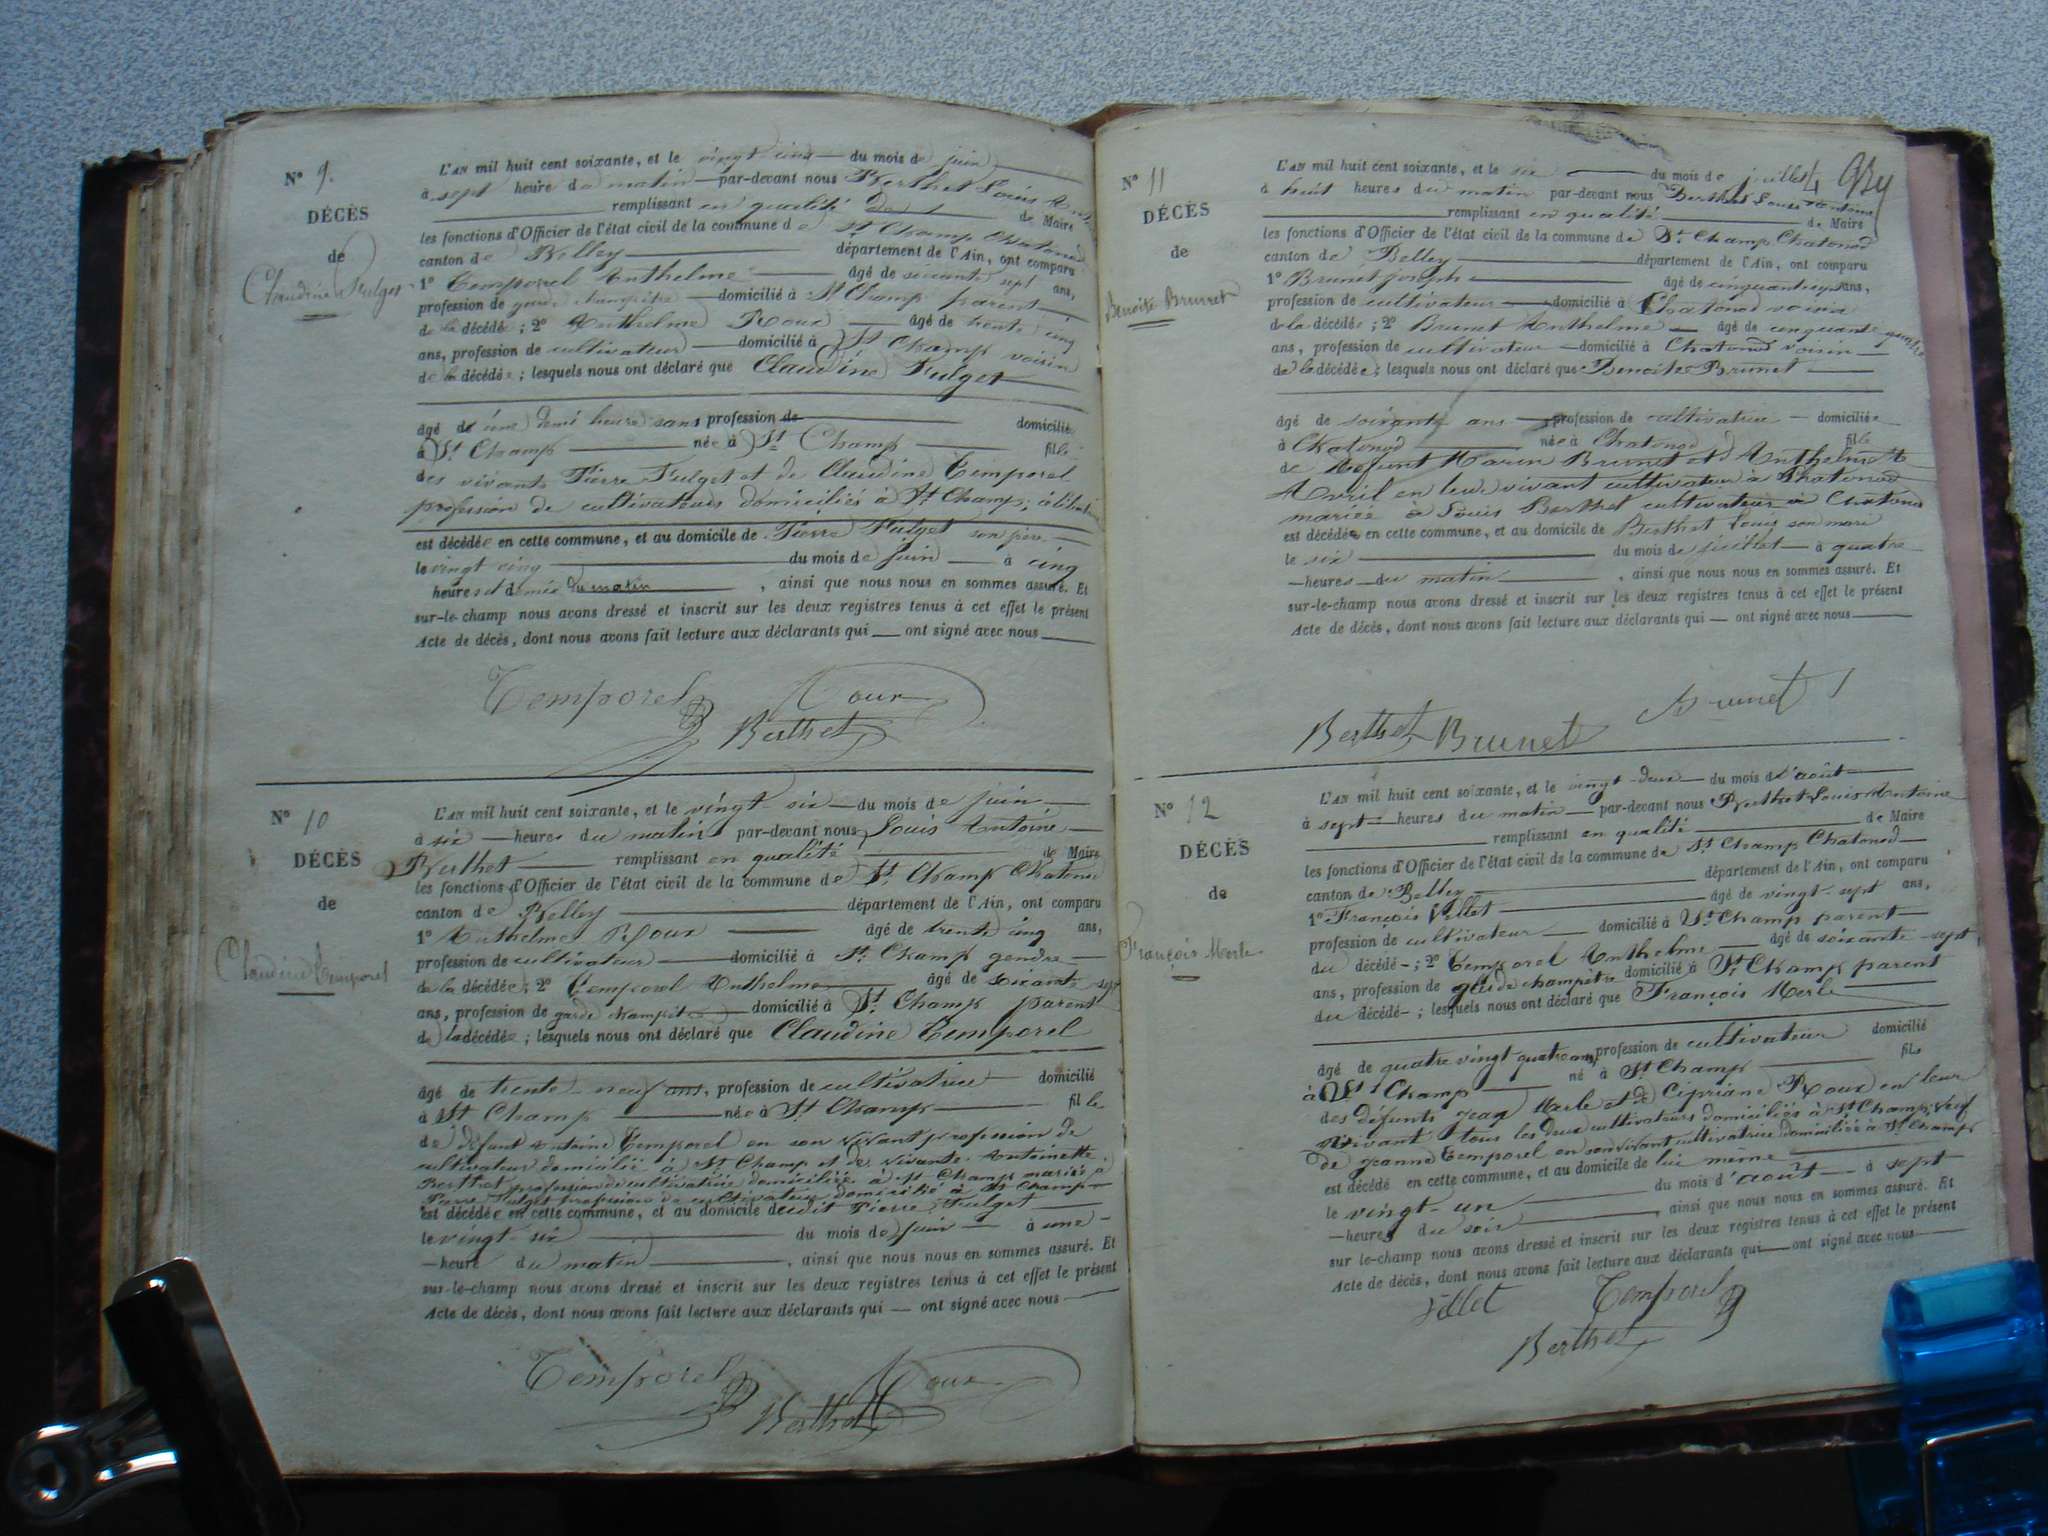 N° 9.
DÉCÈS
de
Claudine Fulget
L'AN mil huit cent soixante, et le vingt cinq du mois de juin
à sept heure du matin par-devant nous Berthet Louis
remplissant en qualité de de Maire
les fonctions d'Officier de l'état civil de la commune de St Champ Chatonod
canton de Belley département de l'Ain, ont comparu
1° Temporel Anthelme âgé de soixante sept ans,
profession de garde champêtre domicilié à St Champ parent
de la décédée; 2° Anthelme Roux âgé de trente cinq
ans, profession de cultivateur domicilié à St Champ voisin
de la décédée; lesquels nous ont déclaré que Claudine Fulget
âgé de une demi heure sans profession de domicilié
à St Champ née à St Champ fille
des vivants Pierre Fulget et de Claudine Temporel
profession de cultivateurs domiciliés à St Champ; célibataire
est décédée en cette commune, et au domicile de Pierre Fulget son père
le vingt cinq du mois de juin à cinq
heures et demie du matin, ainsi que nous nous en sommes assuré. Et
sur-le-champ nous avons dressé et inscrit sur les deux registres tenus à cet effet le présent
Acte de décès, dont nous avons fait lecture aux déclarants qui ont signé avec nous
Temporel Roux
Berthet
N° 10
DÉCÈS
de
Claudine Temporel
L'AN mil huit cent soixante, et le vingt six du mois de juin
à six heures du matin par-devant nous Louis Antoine
Berthet remplissant en qualité de Maire
les fonctions d'Officier de l'état civil de la commune de St Champ Chatonod
canton de Belley département de l'Ain, ont comparu
1° Anthelme Roux âgé de trente cinq ans,
profession de cultivateur domicilié à St Champ gendre
de la décédée; 2° Temporel Anthelme âgé de soixante sept
ans, profession de garde champêtre domicilié à St Champ parent
de la décédée; lesquels nous ont déclaré que Claudine Temporel
âgé de trente neuf ans, profession de cultivatrice domicilié
à St Champ née à St Champ fille
de défunt Antoine Temporel en son vivant profession de
cultivateur domicilié à St Champ et de vivante Antoinette
Berthet profession de cultivatrice domiciliée à St Champ mariée à
Pierre Fulget profession de cultivateur domicilié à St Champ
est décédée en cette commune, et au domicile dudit Pierre Fulget
le vingt six du mois de juin à une
heure du matin, ainsi que nous nous en sommes assuré. Et
sur-le-champ nous avons dressé et inscrit sur les deux registres tenus à cet effet le présent
Acte de décès, dont nous avons fait lecture aux déclarants qui ont signé avec nous
Temporel Roux
Berthet
N° 11
DÉCÈS
de
Benoite Brunet
L'AN mil huit cent soixante, et le six du mois de juillet
à huit heures du matin par-devant nous Berthet Louis Antoine
remplissant en qualité de Maire
les fonctions d'Officier de l'état civil de la commune de St Champ Chatonod
canton de Belley département de l'Ain, ont comparu
1° Brunet Joseph âgé de cinquante sept ans,
profession de cultivateur domicilié à Chatonod voisin
de la décédée; 2° Brunet Anthelme âgé de cinquante quatre
ans, profession de cultivateur domicilié à Chatonod voisin
de la décédée; lesquels nous ont déclaré que Benoite Brunet
âgé de soixante ans profession de cultivatrice domiciliée
à Chatonod née à Chatonod fille
de défunt Marin Brunet et d'Anthelmette
Avril en leur vivant cultivateur à Chatonod
mariée à Louis Berthet cultivateur à Chatonod
est décédée en cette commune, et au domicile de Berthet Louis son mari
le six du mois de juillet à quatre
heures du matin, ainsi que nous nous en sommes assuré. Et
sur-le-champ nous avons dressé et inscrit sur les deux registres tenus à cet effet le présent
Acte de décès, dont nous avons fait lecture aux déclarants qui ont signé avec nous
Brunet
Berthet Brunet
N° 12
DÉCÈS
de
François Merle
L'AN mil huit cent soixante, et le vingt deux du mois d'août
à sept heures du matin par-devant nous Berthet Louis Antoine
remplissant en qualité de Maire
les fonctions d'Officier de l'état civil de la commune de St Champ Chatonod
canton de Belley département de l'Ain, ont comparu
1° François Vellet âgé de vingt-sept ans,
profession de cultivateur domicilié à St Champ parent
du décédé; 2° Temporel Anthelme âgé de soixante sept
ans, profession de garde champêtre domicilié à St Champ parent
du décédé; lesquels nous ont déclaré que François Merle
âgé de quatre vingt quatre ans, profession de cultivateur domicilié
à St Champ né à St Champ fils
des défunts Jean Merle et de Cipriane Roux en leur
vivant tous les deux cultivateurs domiciliés à St Champ; veuf
de Jeanne Temporel en son vivant cultivatrice domiciliée à St Champ
est décédé en cette commune, et au domicile de lui même
le vingt-un du mois d'août à sept
heures du soir, ainsi que nous nous en sommes assuré. Et
sur le-champ nous avons dressé et inscrit sur les deux registres tenus à cet effet le présent
Acte de décès, dont nous avons fait lecture aux déclarants qui ont signé avec nous
Vellet Temporel
Berthet